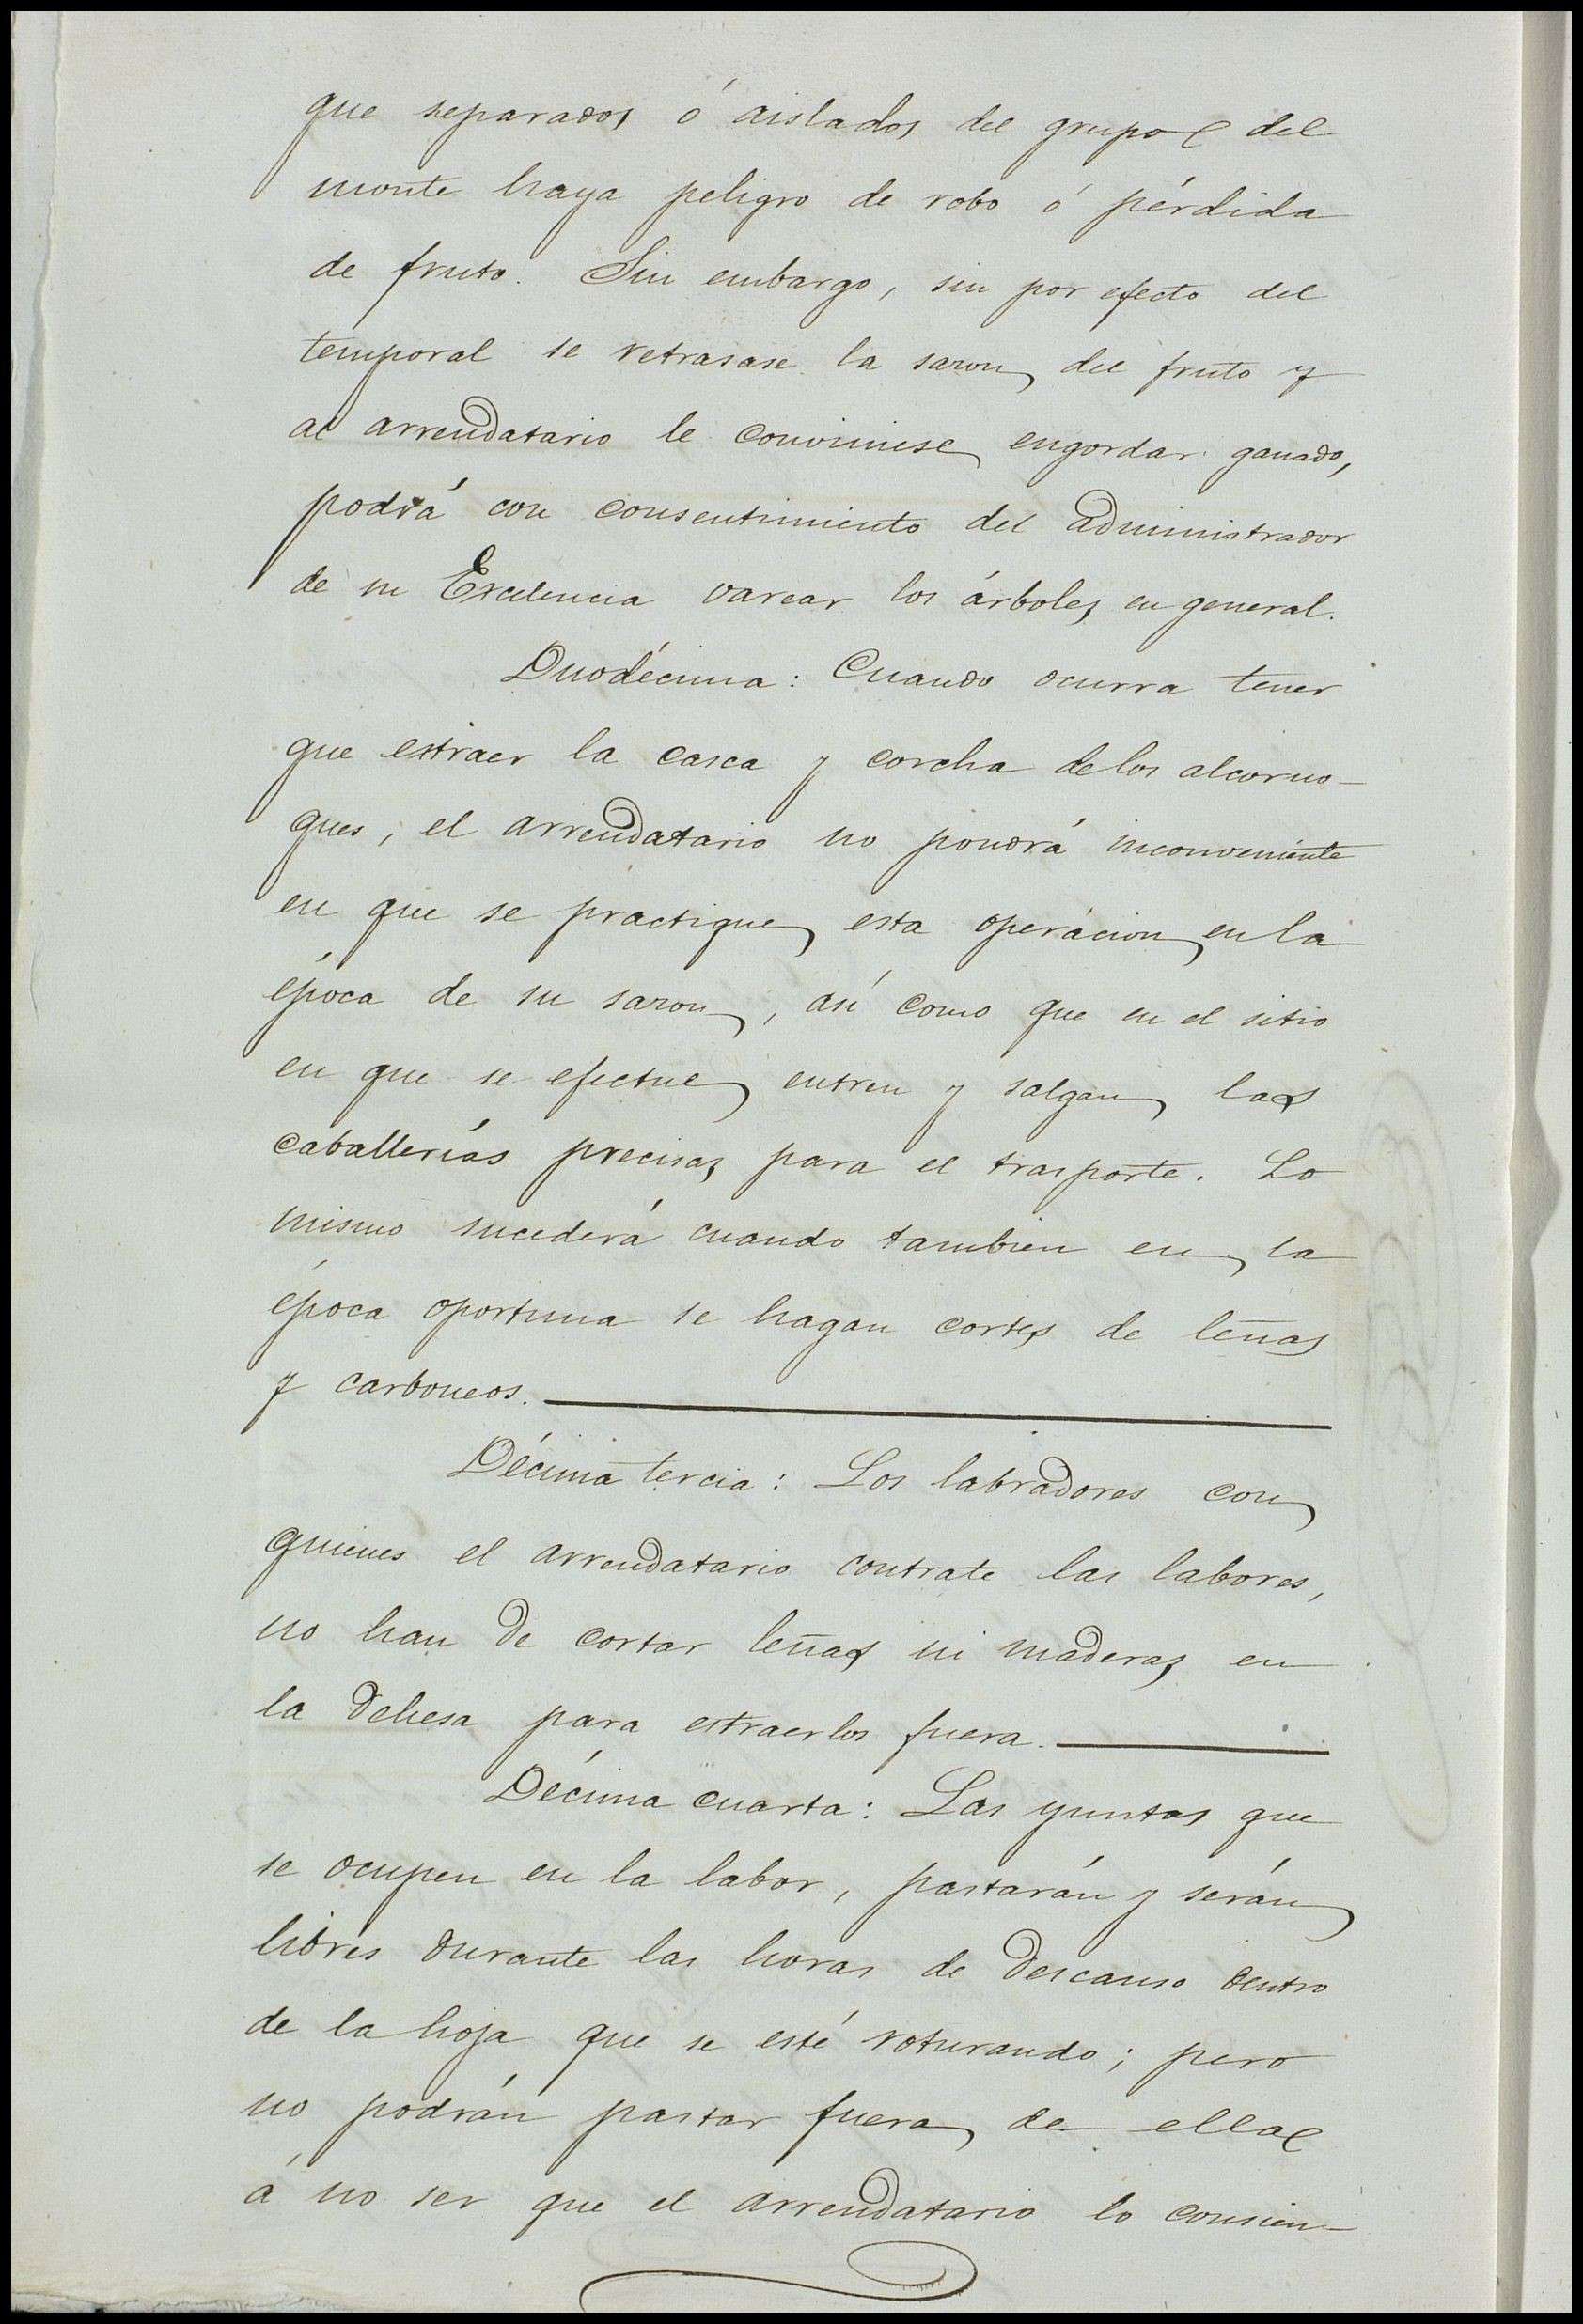 que separados ó aislados del grupo del
monte haya peligro de robo ó pérdida
de fruto. Sin embargo, sin por efecto del
temporal se retrasase la sazon del fruto y
al arrendatario le conviniese engordar ganado,
podrá con consentimiento del administrador
de su Excelencia varear los árboles en general.
Duodécima: Cuando ocurra tener
que estraer la casca y corcha de los alcorno-
ques, el arrendatario no pondrá inconveniente
en que se practique esta operacion en la
época de su sazon, así como que en el sitio
en que se efectue entren y salgan las
caballerías precisas para el trasporte. Lo
mismo sucederá cuando tambien en la
época oportuna se hagan cortes de leñas
y carboneos.
Décima tercia: Los labradores con
quienes el arrendatario contrate las labores,
no han de cortar leñas ni maderas en
la dehesa para estraerlos fuera.
Décima cuarta: Las yuntas que
se ocupen en la labor, pastarán y serán
libres durante las horas de descanso dentro
de la hoja que se esté roturando; pero
no podrán pastar fuera de ella
á no ser que el arrendatario lo consien-